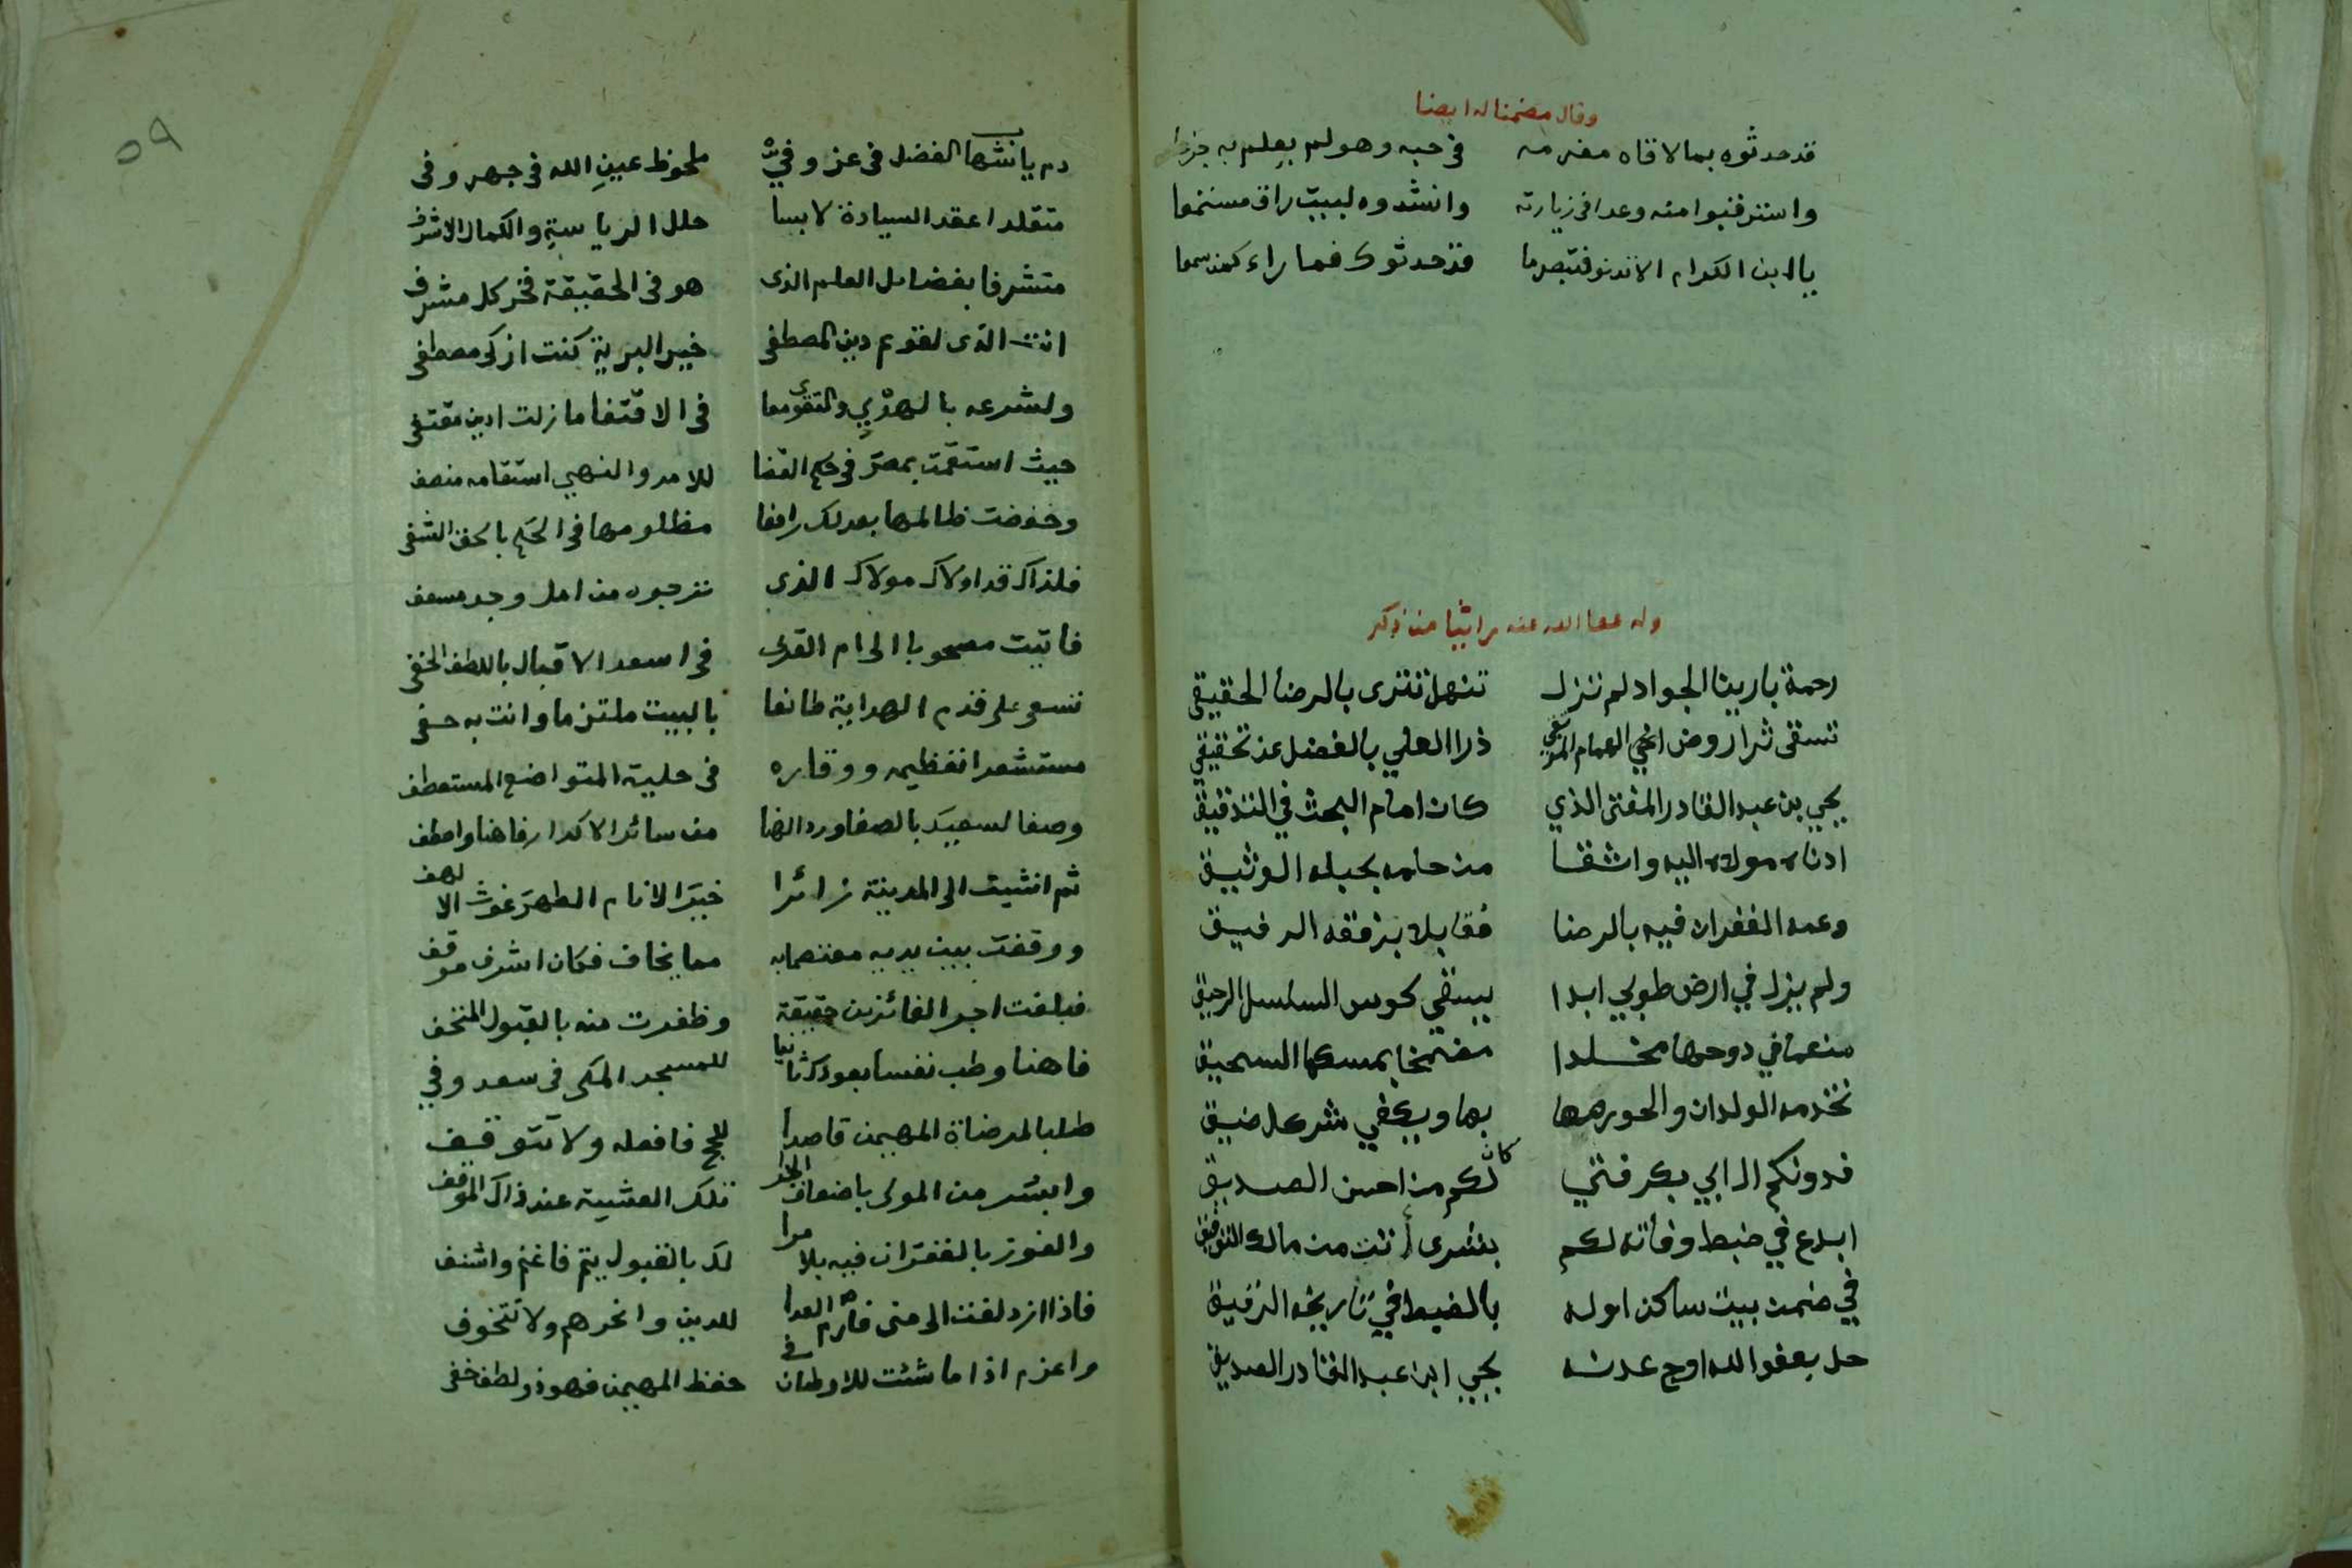 وقال مضمنا له ايضنا
قد حدثوه بما لاقاه مغرمه في حبه وهو لم يعلم به جزعا
واسترقبوا منه وعدا في زيارته وانشدوه لبيت راق مستمعا
يا ابن الكرام الا تدنو فتبصر ما قد حدثوك فما راء كمن سمعا
وله عفا الله عنه راثيا من ذكر
رحمة بارينا الجواد لم تزل تنهل تترى بالرضا الحقيقي
تسقى ثرا روض اخي الهمام ذرا العلي بالفضل عن تحقيقي
يحيي بن عبد القادر المفتى الذي كان امام البحث في التدقيق
ادناه مولاه اليه وانتقا من حامه بحبله الوثيق
وعمه الغفران فيه بالرضا مقابلا برفقه الرفيق
ولم يزل في ارض طوبي ابدا يستقي كوس السلسل الرحيق
منعما في دوحها مخلدا مضمخا بمسكها السحيق
تخدمه الولدان والحور بها ويكفي شر كل ضيق
فدونكم ابي بكر فتي كاتبكم من احسن الصديق
ابدع في ضبط وفاته لكم بشرى أتت من مالك التوفيق
في ضمن بيت ساكن اوله بالضبط في تاريخه الرقيق
حل بعفو الله اوج عدنه يحيي ابن عبد القادر الصديقي
٥٩
دم يا بنها الفضل في عز وفي ملحوظ عين الله في جهر وفى
متقلدا عقد السيادة لابسا حلل الرياسة والكمال الاشرف
متشرفا بفضامل العلم الذى هو فى الحقيقة فخر كل مشرف
انت الذى لقويم دين المصطفى خير البرية كنت ازكى مصطفى
ولشرعه بالهدي والتقوى معا فى الاقتفا ما زلت اين مقتفى
حيث استقمت بمصر فى حكم القضا للامر والنهي استقامه منصف
وخفضت ظالمها بعدلك رافعا مظلومها فى الحكم بالحق الشفى
فلذاك قد اولاك مولاك الذى ترجوه من امل وجد مسعف
فاتيت مصحوبا الى ام القرى فى اسعد الاقبال باللطف الخفى
تسعى على قدم الهداية طائفا بالبيت ملتزما وانت به حفى
مستشعرا تعظيمه ووقاره فى حلية المتواضع المستعطف
وصفا لسعيك بالصفا ورد الهنا من سائر الاكدار فاهنا واصطف
ثم انثيت الى المدينة زائرا خير الانام الطهر غوث اللهف
ووقفت بين يديه معتصما به مما يخاف فكان اشرف موقف
فبلغت اجر الفائزين حقيقة وظفرت منه بالقبول المتحف
فاهنا وطب نفسا بعودك ثانيا للمسجد المكى فى سعد وفي
طلبا لمرضاة المهيمن قاصدا للحج فافعله ولا تتوقف
وابشر من المولى باضعاف الجزا تلك العشية عند ذاك الموقف
والفوز بالغفران فيه بلا مرا لك بالقبول يتم فاغنم واشتف
فاذا ازدلفت الى منى فارم العدا للدين وانحرهم ولا تتخوف
واعزم اذا ما شئت للاوطان في حفظ المهيمن فهو ذو لطف خفى